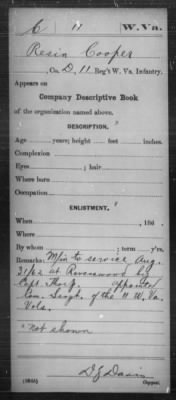 C 11 W. Va.
Resin Cooper
, Co. D, 11 Reg't W. Va. Infantry.
Appears on
Company Descriptive Book
of the organization named above.
DESCRIPTION.
Age years; height feet inches.
Complexion
Eyes ; hair
Where born
Occupation
ENLISTMENT.
When , 186 .
Where
By whom ; term y'rs.
Remarks: M/in to service Aug.
31/62 at Ravenswood by
Capt. appointed
Com. Sergt. of the 11 W. Va.
Vols.
" not shown
D J Davis
Copyist.